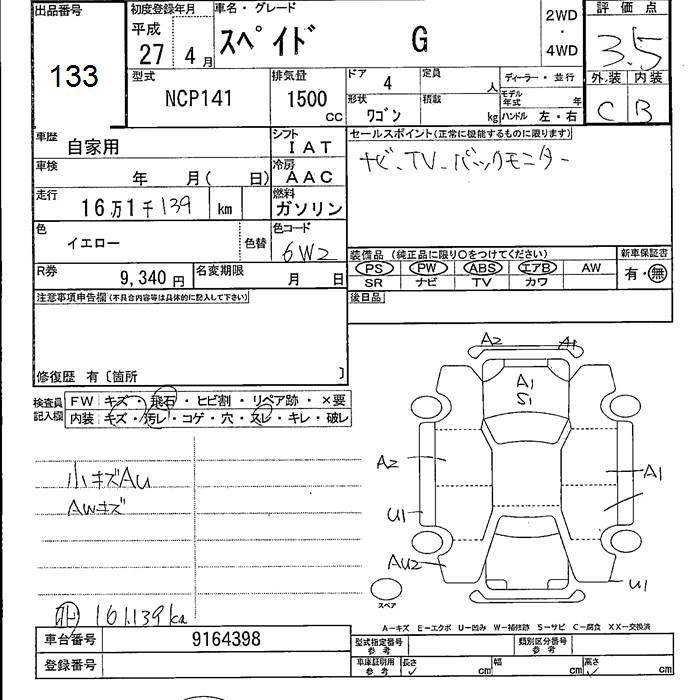 出品番号
133
初度登録年月
平成
27 4月
車名・グレード
スペイド G
2WD
・
4WD
評価点
3.5
外装 内装
C B
型式
NCP141
排気量
1500
CC
ドア 4
定員 人
形状 ワゴン
積載 kg
ディーラー・並行
モデル年式 年
ハンドル 左・右
車歴
自家用
シフト
IAT
セールスポイント(正常に機能するものに限ります)
ナビ、TV、バックモニター
車検
年 月( 日)
冷房
AAC
走行
16万1千139 km
燃料
ガソリン
色
イエロー
色替
色コード
6W2
装備品 (純正品に限り○をつけてください)
PS PW ABS エアB AW
SR ナビ TV カワ
新車保証書
有・無
R券
9,340円
名変期限
月 日
後日品
注意事項申告欄(不具合内容等は具体的に記入して下さい)
修復歴 有〔箇所 〕
検査員
記入欄
FW キズ・飛石・ヒビ割・リペア跡・×要
内装 キズ・汚レ・コゲ・穴・スレ・キレ・破レ
小キズAU
AWキズ
161,139km
A2 A1
A1
S1
A2 A1
U1
AU2 U1
スペア
A-キズ E-エクボ U-凹み W-補修跡 S-サビ C-腐食 XX-交換済
車台番号 9164398
登録番号
型式指定番号
参考
類別区分番号
参考
車庫証明用
参考
長さ cm 幅 cm 高さ cm